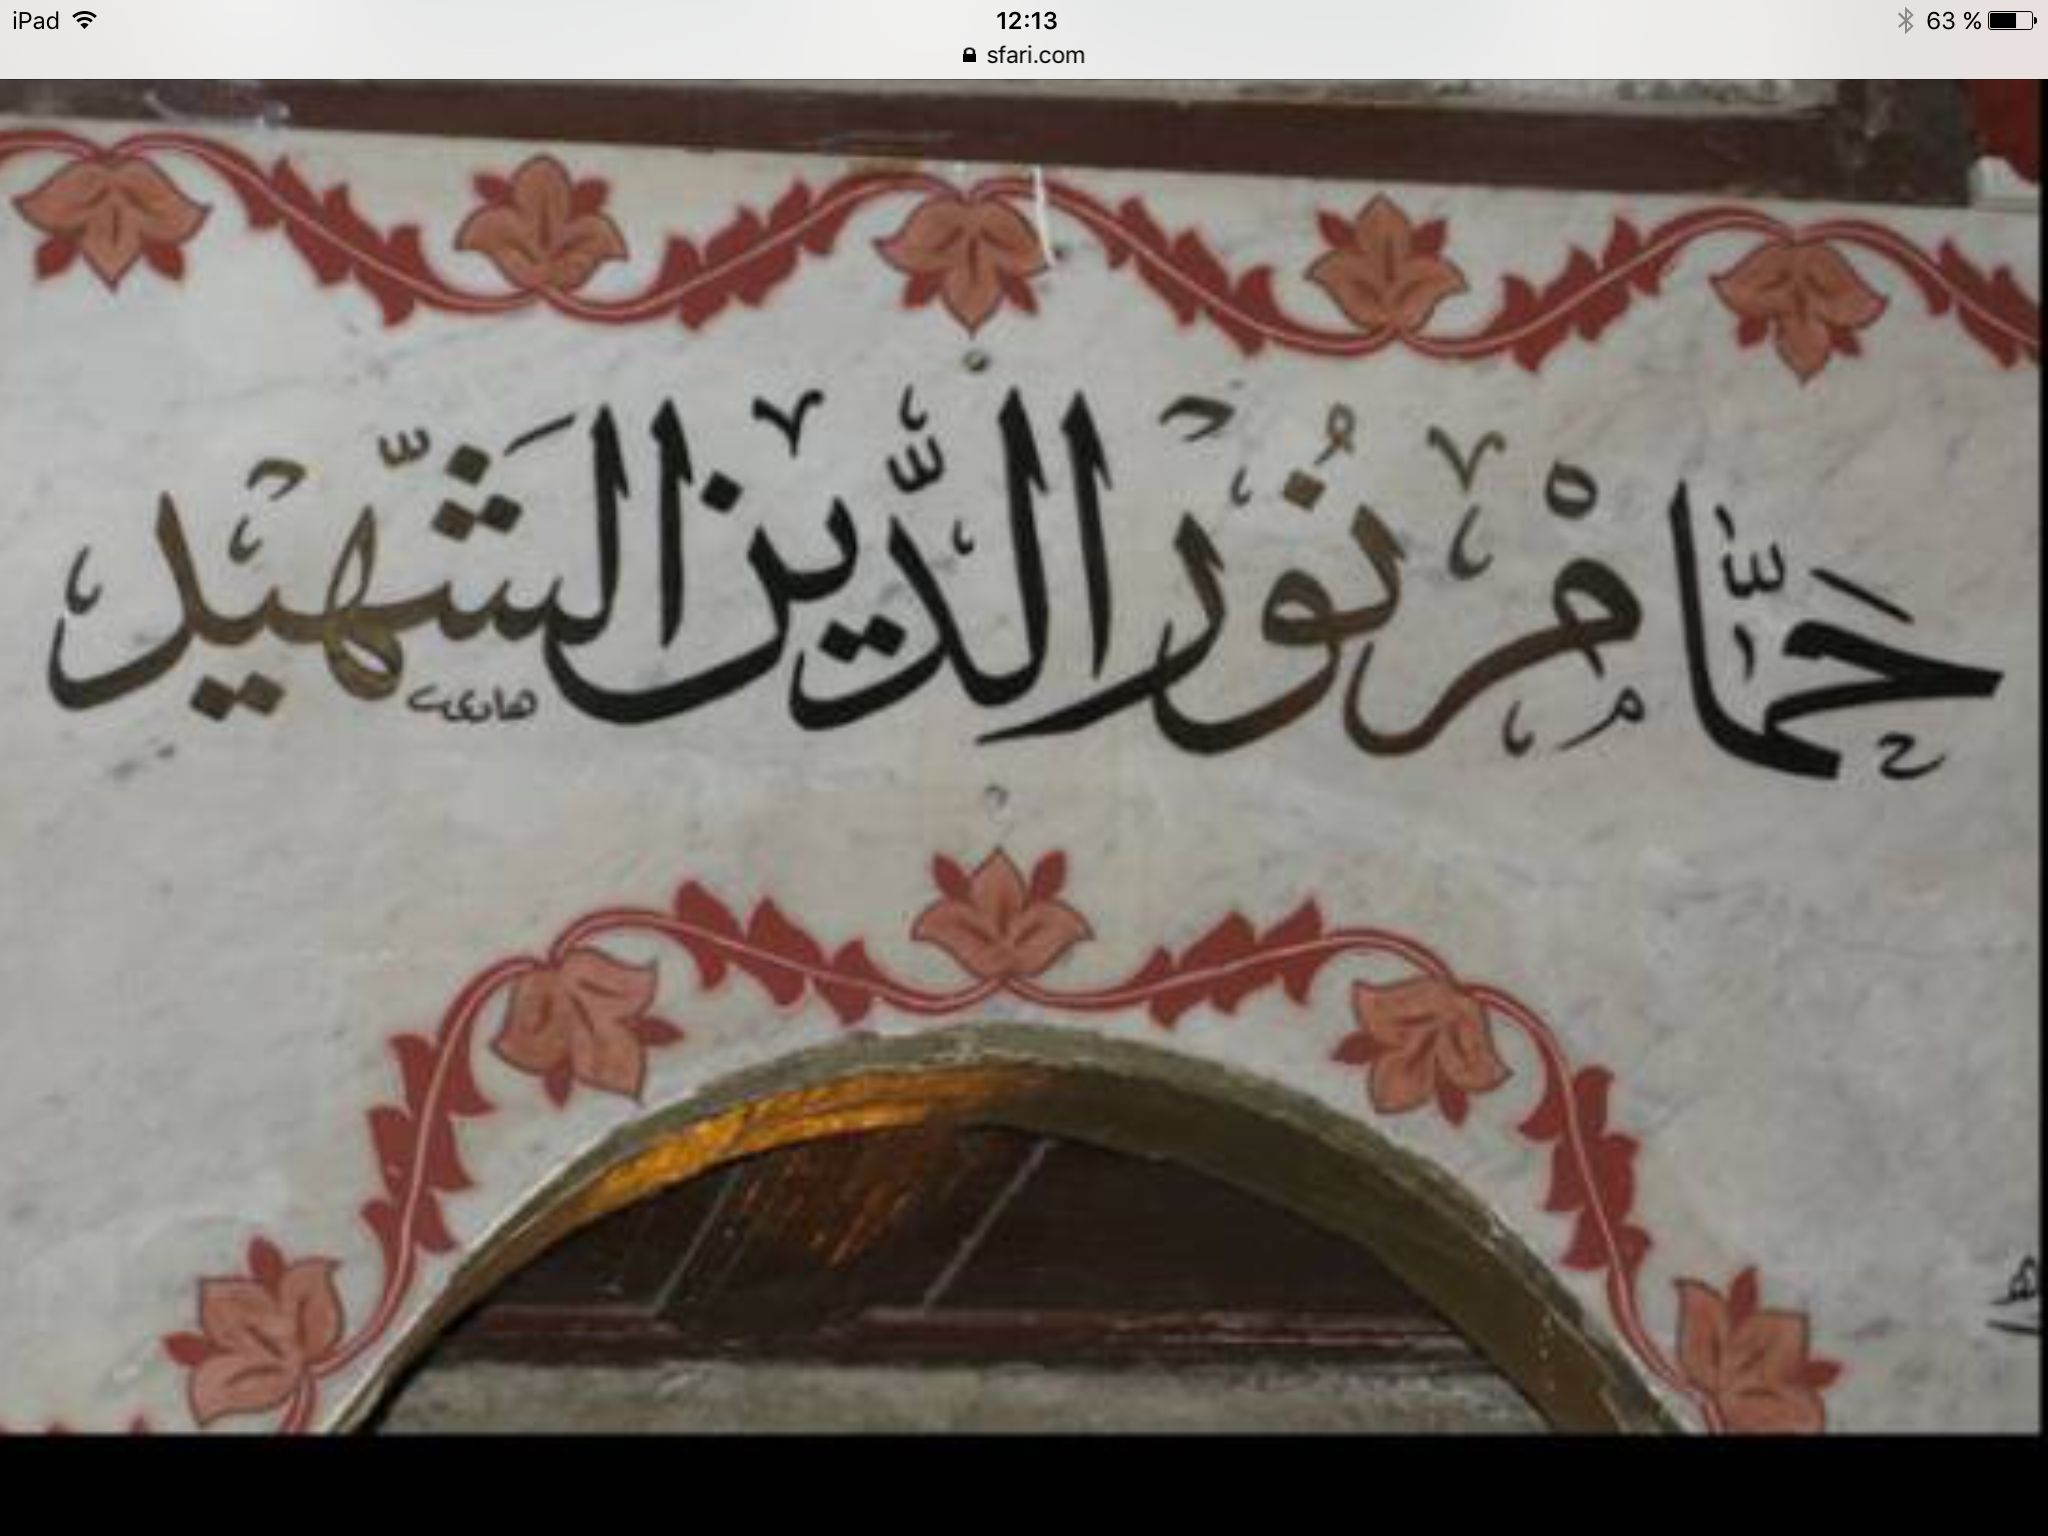 iPad 12:13 63 %
sfari.com
حَمَّامْ نُور الدِّين الشَّهيد